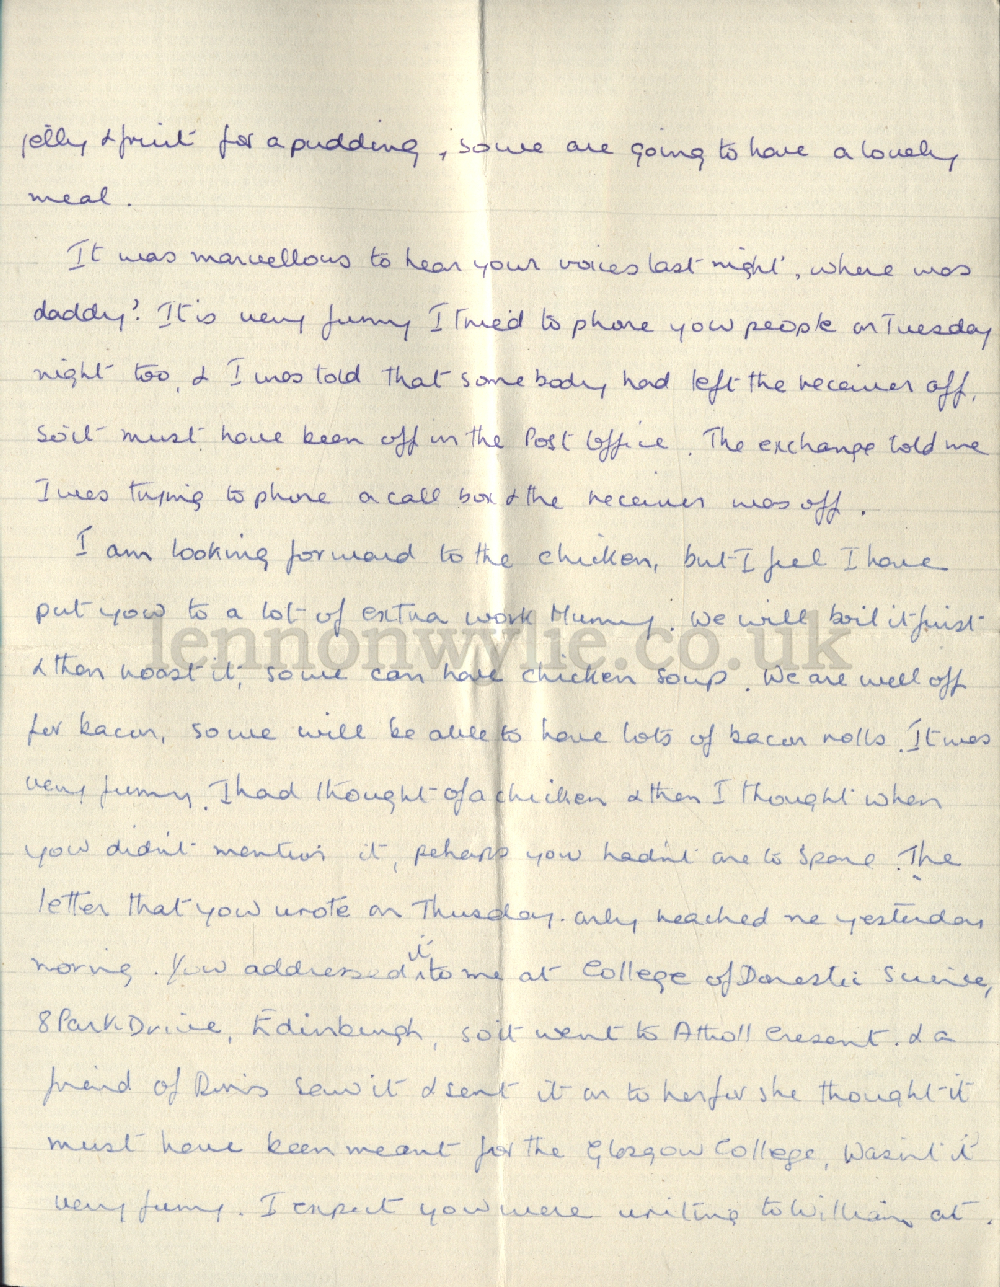 jelly & fruit for a pudding, so we are going to have a lovely
meal.
It was marvellous to hear your voices last night, where was
daddy? It is very funny I tried to phone you people on Tuesday
night too, & I was told that somebody had left the receiver off,
so it must have been off in the Post Office. The exchange told me
I was trying to phone a call box & the receiver was off.
I am looking forward to the chicken, but I feel I have
put you to a lot of extra work Mummy. We will boil it first
lennonwylie.co.uk
& then roast it, so we can have chicken soup. We are well off
for bacon, so we will be able to have lots of bacon rolls. It was
very funny. I had thought of a chicken & then I thought when
you didn't mention it, pehaps you hadn't one to spare. The
letter that you wrote on Thursday only reached me yesterday
morning. You addressed it to me at College of Domestic Science,
8 Park Drive, Edinburgh, so it went to Atholl Cresent. & a
friend of Doris saw it & sent it on to her for she thought it
must have been meant for the Glasgow College, wasn't it
very funny. I expect you were writing to William at.